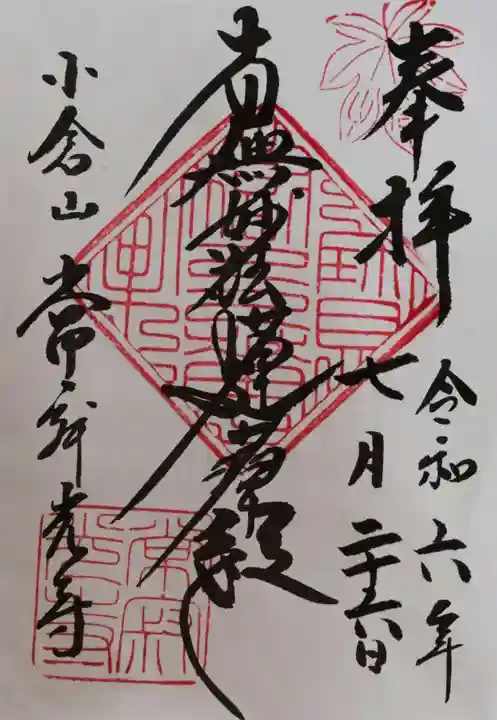 奉拝
令和六年
七月二十六日
南無妙法蓮華経
小倉山
常寂光寺